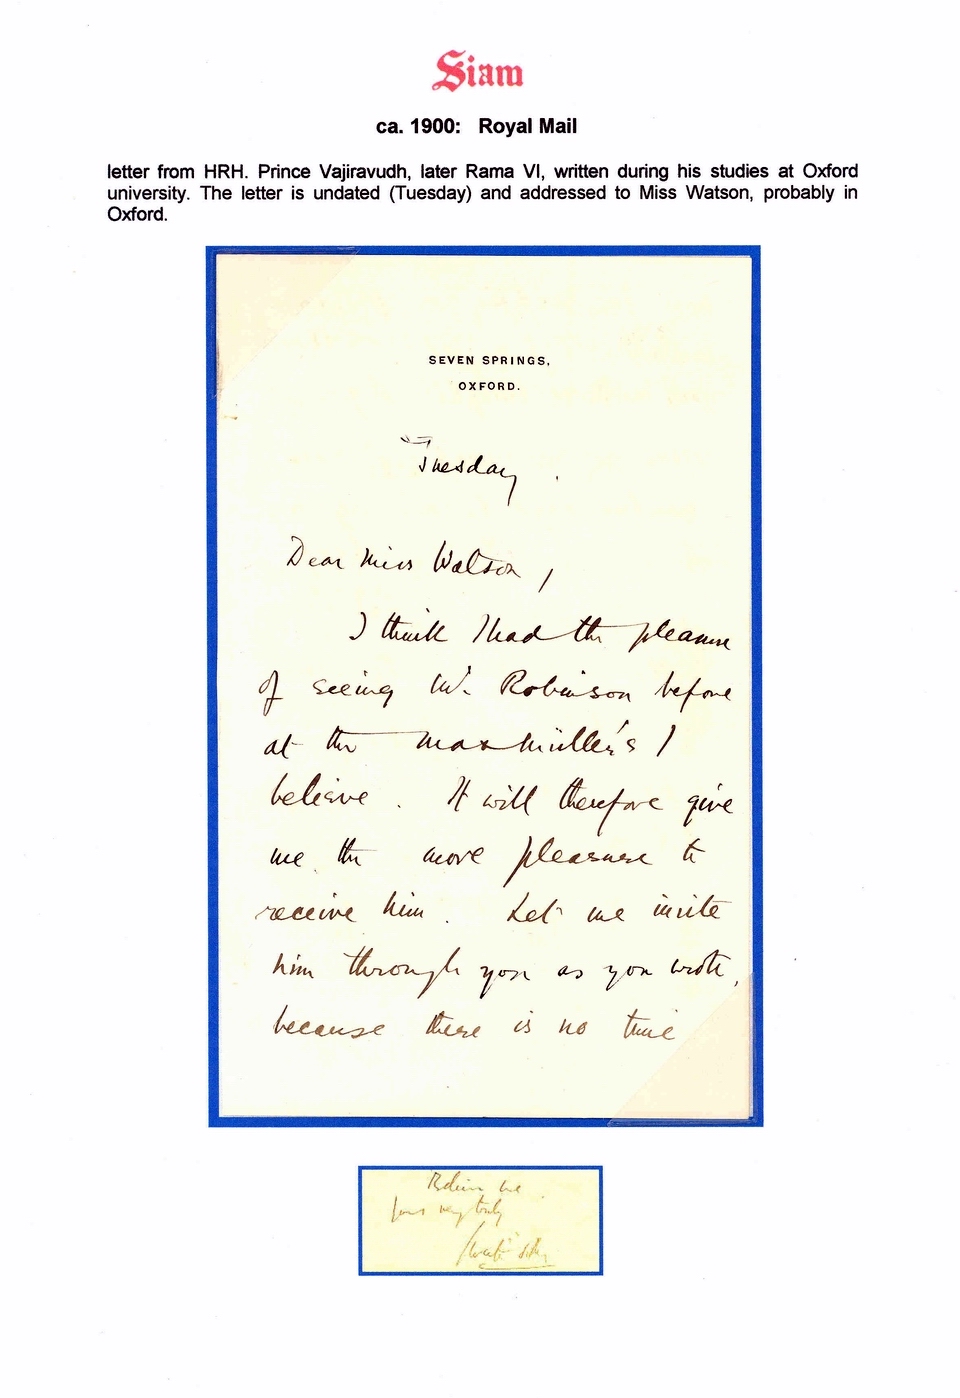 Siam
ca. 1900: Royal Mail
letter from HRH. Prince Vajiravudh, later Rama VI, written during his studies at Oxford
university. The letter is undated (Tuesday) and addressed to Miss Watson, probably in
Oxford.
SEVEN SPRINGS,
OXFORD.
Tuesday.
Dear Miss Watson,
I think I had the pleasure
of seeing Mr. Robinson before
at the Max Müller's I
believe. It will therefore give
me the more pleasure to
receive him. Let me invite
him through you as you wrote,
because there is no time
Believe me
yours very truly